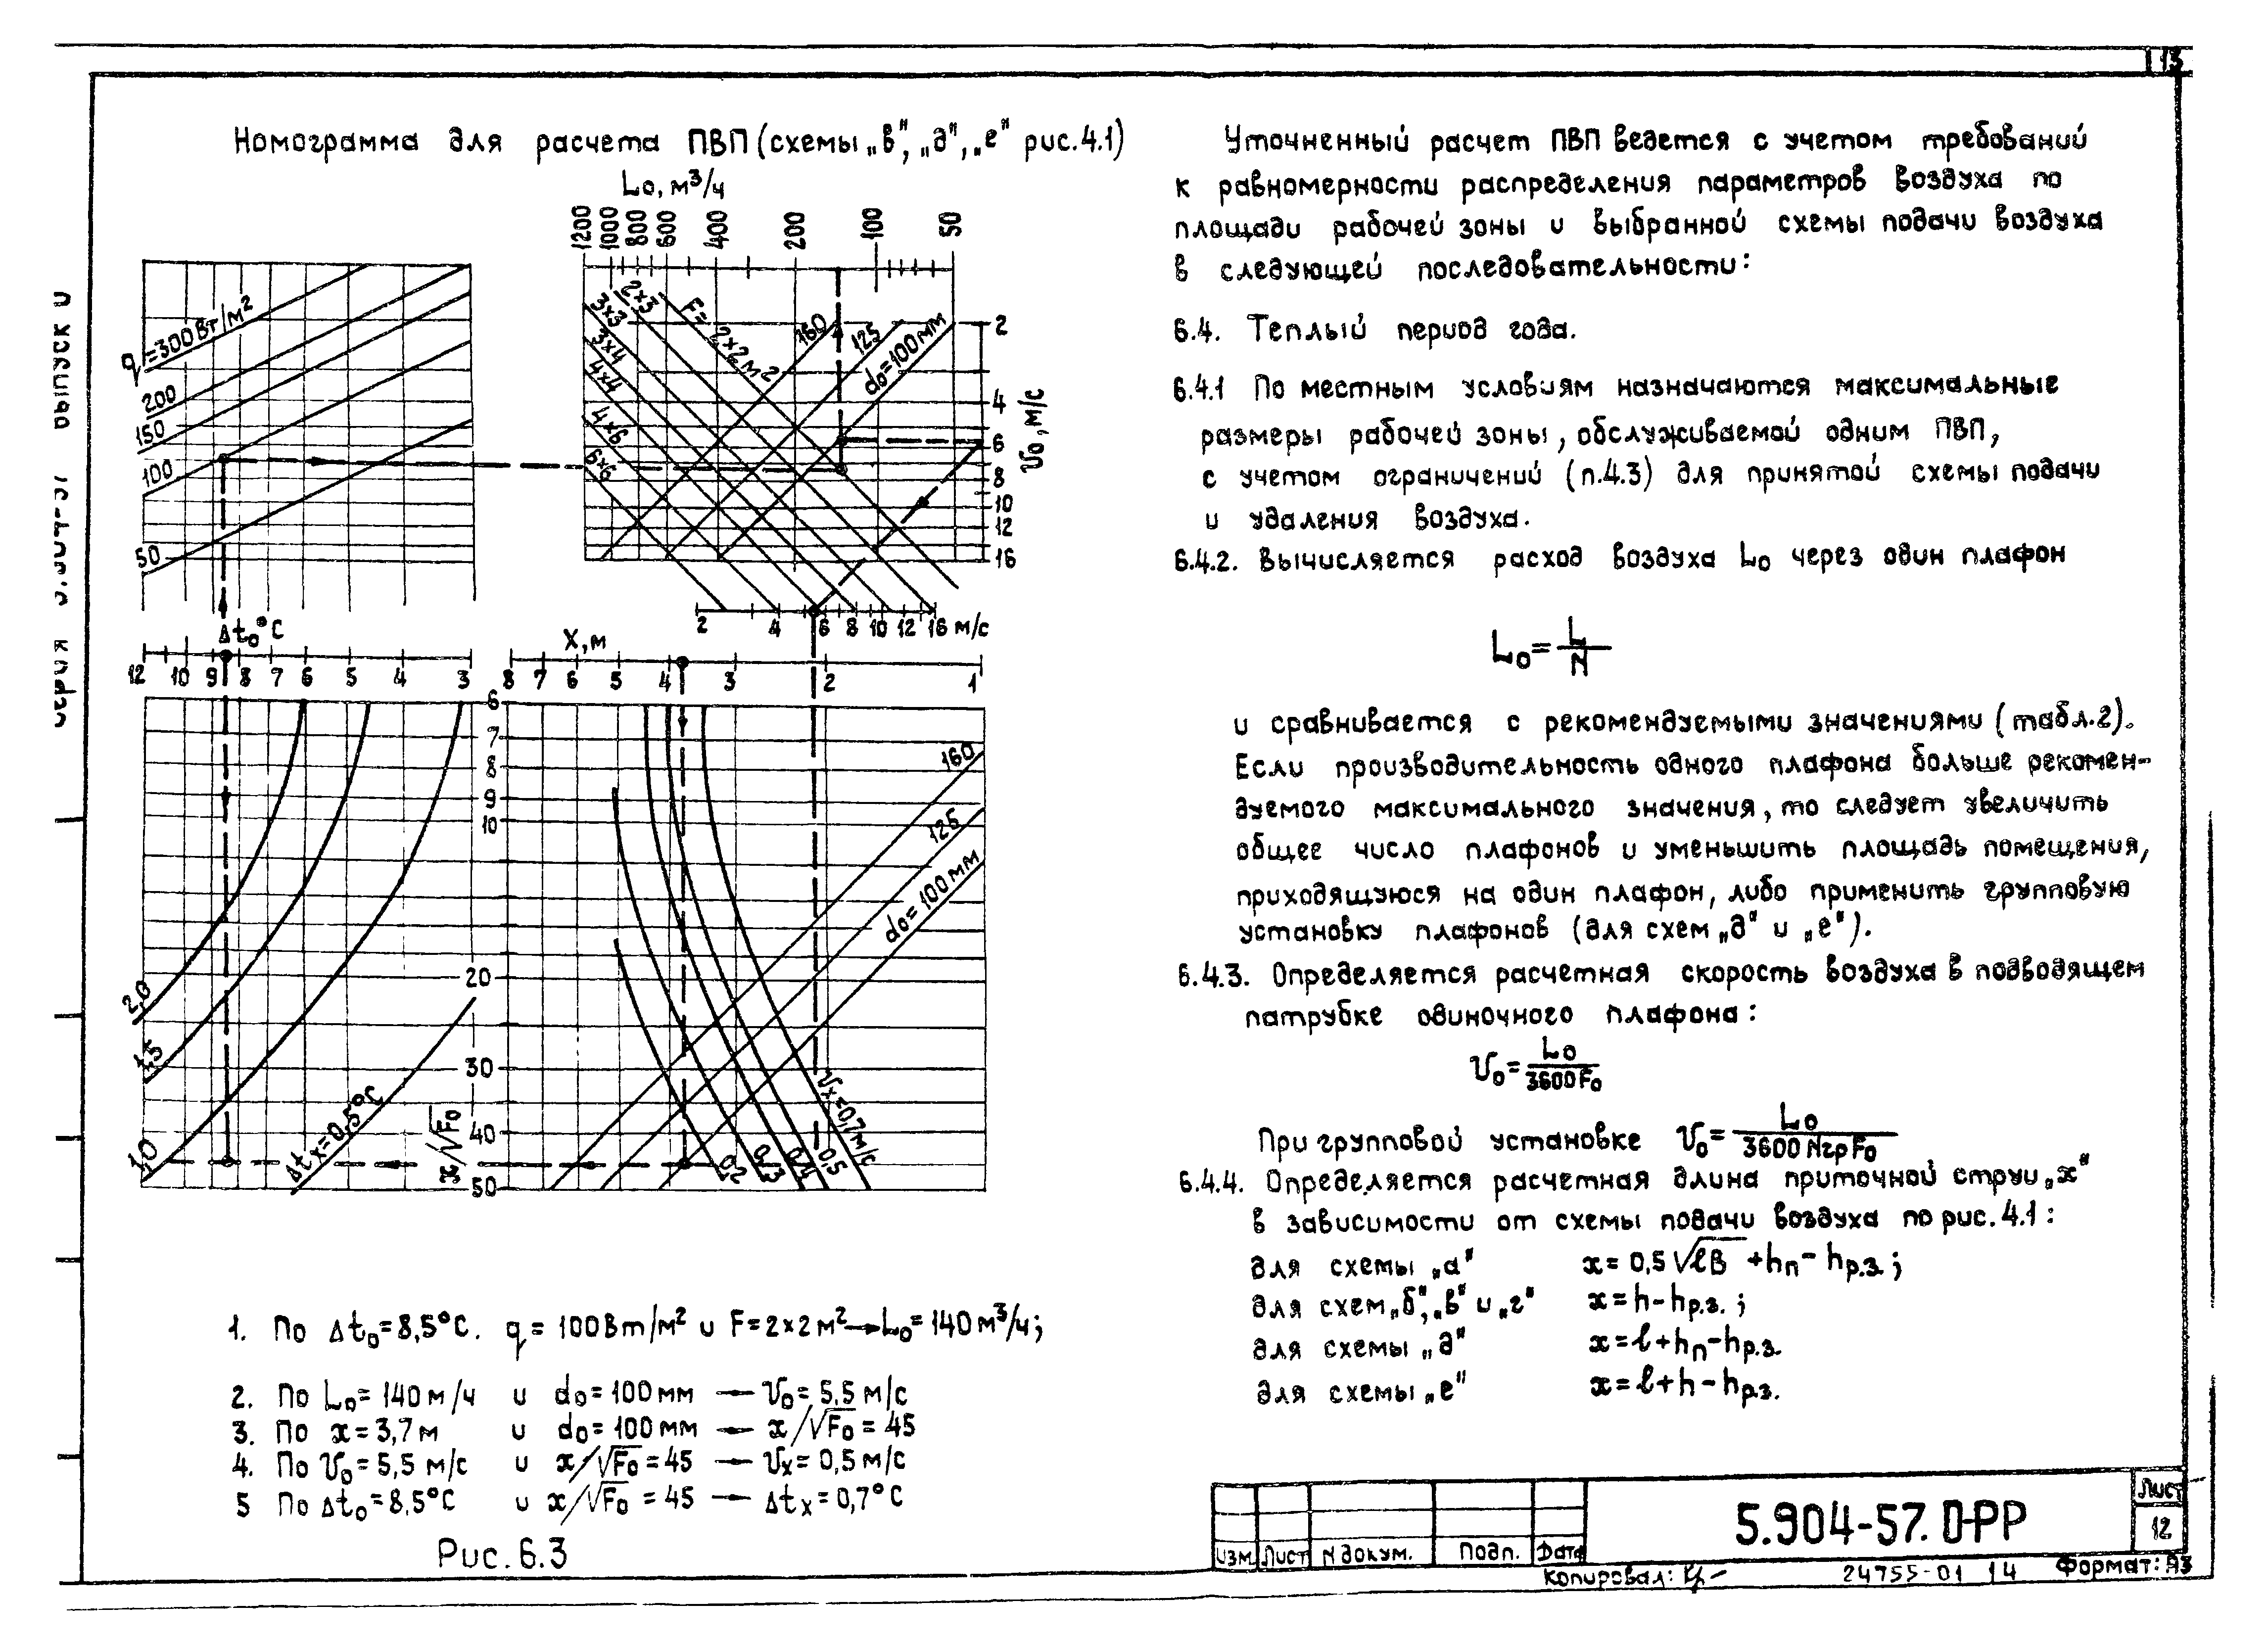 13
Номограмма для расчета ПВП (схемы „в", „д", „е" рис. 4.1)
L₀, м³/ч
1200 1000 800 600 400 200 100 50
q=300Вт/м²
200
150
100
50
3×3
2×3
F=2×2м²
3×4
4×4
4×6
6×6
160
125
d₀=100мм
2
4
6
8
10
12
16
V₀, м/с
2 4 6 8 10 12 16 м/с
Δt₀°C
12 10 9 8 7 6 5 4 3
X, м
8 7 6 5 4 3 2 1
6
7
8
9
10
20
30
40
50
x/√F₀
2,0
1,5
1,0
Δtx=0,5°C
160
125
d₀=100мм
Vx=0,7м/с
0,2
0,3
0,4
0,5
1. По Δt₀=8,5°C. q=100Вт/м² и F=2×2м²→L₀=140м³/ч;
2. По L₀=140м/ч и d₀=100мм — V₀=5,5м/с
3. По x=3,7м и d₀=100мм — x/√F₀=45
4. По V₀=5,5 м/с и x/√F₀=45 — Vx=0,5м/с
5 По Δt₀=8,5°C и x/√F₀=45 — Δtx=0,7°C
Рис. 6.3
Уточненный расчет ПВП ведется с учетом требований
к равномерности распределения параметров воздуха по
площади рабочей зоны и выбранной схемы подачи воздуха
в следующей последовательности:
6.4. Теплый период года.
6.4.1 По местным условиям назначаются максимальные
размеры рабочей зоны, обслуживаемой одним ПВП,
с учетом ограничений (п.4.3) для принятой схемы подачи
и удаления воздуха.
6.4.2. Вычисляется расход воздуха L₀ через один плафон
L₀=L/N
и сравнивается с рекомендуемыми значениями (табл.2).
Если производительность одного плафона больше рекомен-
дуемого максимального значения, то следует увеличить
общее число плафонов и уменьшить площадь помещения,
приходящуюся на один плафон, либо применить групповую
установку плафонов (для схем „д" и „е").
6.4.3. Определяется расчетная скорость воздуха в подводящем
патрубке одиночного плафона:
V₀=L₀/3600F₀
При групповой установке V₀=L₀/3600NгрF₀
6.4.4. Определяется расчетная длина приточной струи „x"
в зависимости от схемы подачи воздуха по рис. 4.1:
для схемы „а" x=0,5√ℓВ+hп-hр.з.;
для схем „б", „в" и „г" x=h-hр.з.;
для схемы „д" x=ℓ+hп-hр.з.
для схемы „е" x=ℓ+h-hр.з.
Изм. Лист N докум. Подп. Дата
5.904-57.0-РР
Лист
12
Копировал:
24755-01 14
Формат: А3